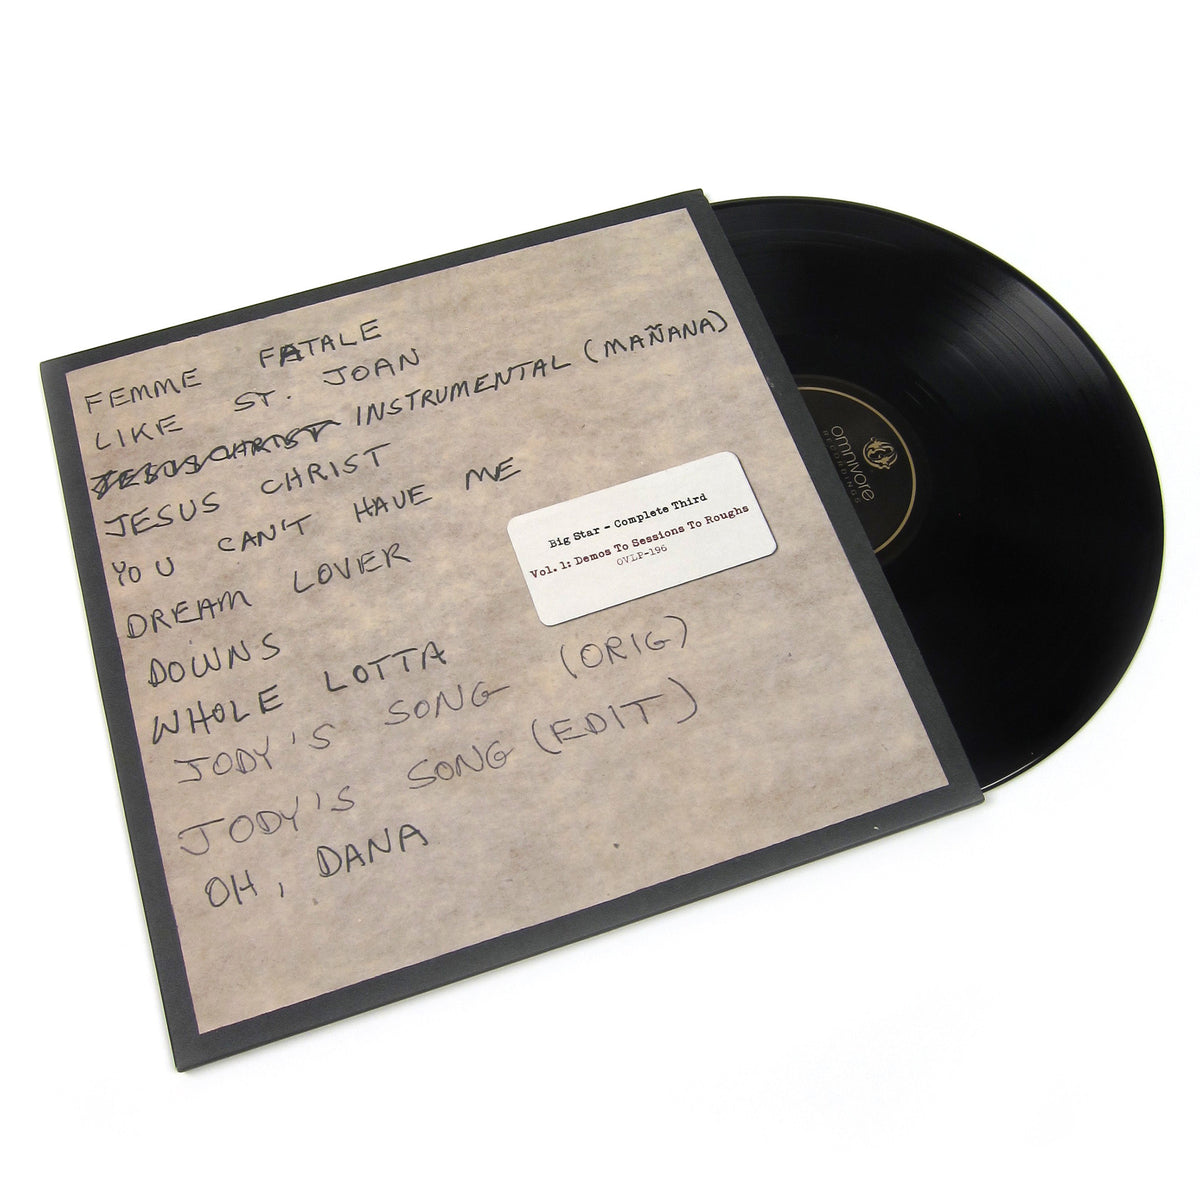 FEMME FATALE
LIKE ST. JOAN
JESUS CHRIST INSTRUMENTAL (MAÑANA)
JESUS CHRIST
YOU CAN'T HAVE ME
DREAM LOVER
DOWNS
WHOLE LOTTA
JODY'S SONG (ORIG)
JODY'S SONG (EDIT)
OH, DANA
Big Star - Complete Third
Vol. 1: Demos To Sessions To Roughs
OVLP-196
omnivore
RECORDINGS